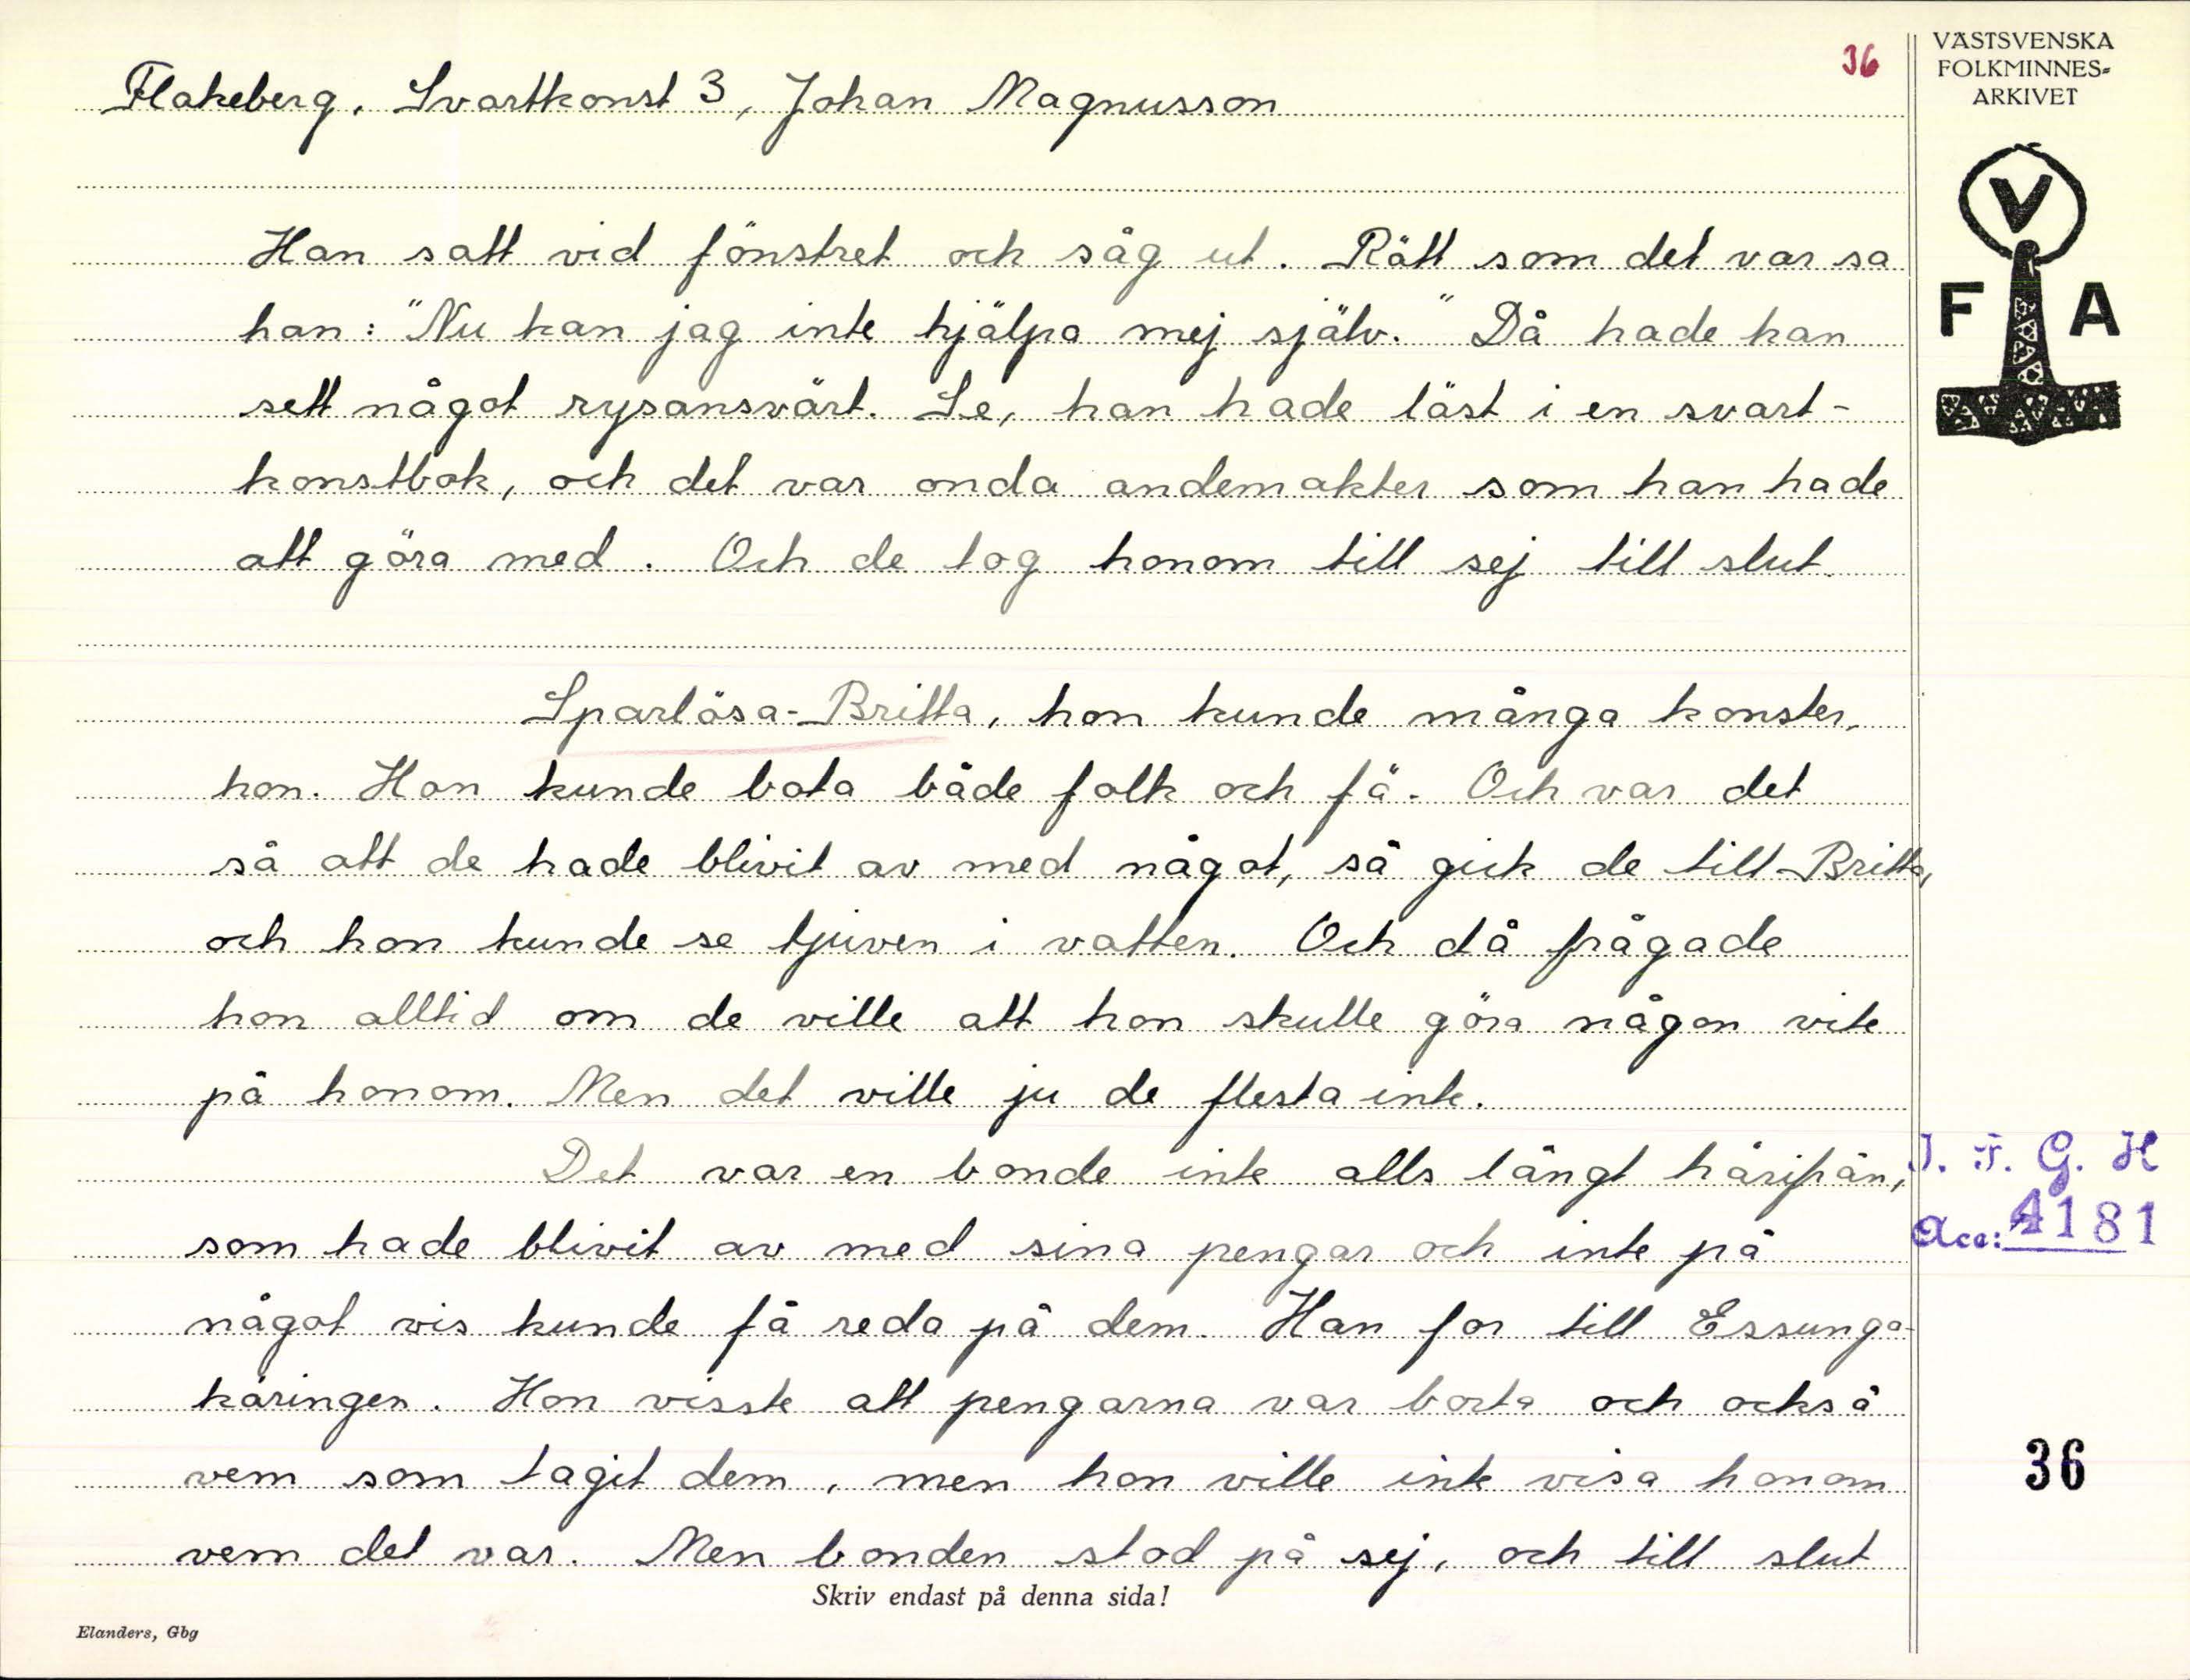 36
Flakeberg. Svartkonst 3, Johan Magnusson
Han satt vid fönstret och såg ut. Rätt som det var sa
han: "Nu kan jag inte hjälpa mej själv." Då hade han
sett något rysansvärt. Se, han hade läst i en svart-
konstbok, och det var onda andemakter som han hade
att göra med. Och de tog honom till sej till slut.
Sparlösa-Britta, hon kunde många konster,
hon. Hon kunde bota både folk och fä. Och var det
så att de hade blivit av med något, så gick de till Britta,
och hon kunde se tjuven i vatten. Och då frågade
hon alltid om de ville att hon skulle göra någon vite
på honom. Men det ville ju de flesta inte.
Det var en bonde inte alls långt härifrån,
som hade blivit av med sina pengar och inte på
något vis kunde få reda på dem. Han for till Essunga-
käringen. Hon visste att pengarna var borta och också
vem som tagit dem, men hon ville inte visa honom
vem det var. Men bonden stod på sej, och till slut
Skriv endast på denna sida!
Elanders, Gbg
VÄSTSVENSKA
FOLKMINNES-
ARKIVET
V
F A
I. F. G. H
Acc: 4181
36